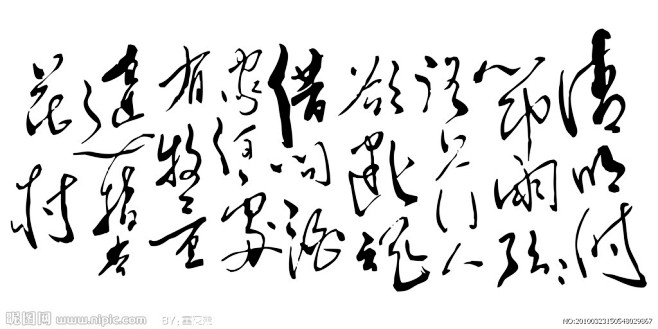 清明时
节雨纷纷
路上行人
欲断魂
借问酒
家何处
有牧童
遥指杏
花村
昵图网 www.nipic.com BY:
NO:20100323150548029867